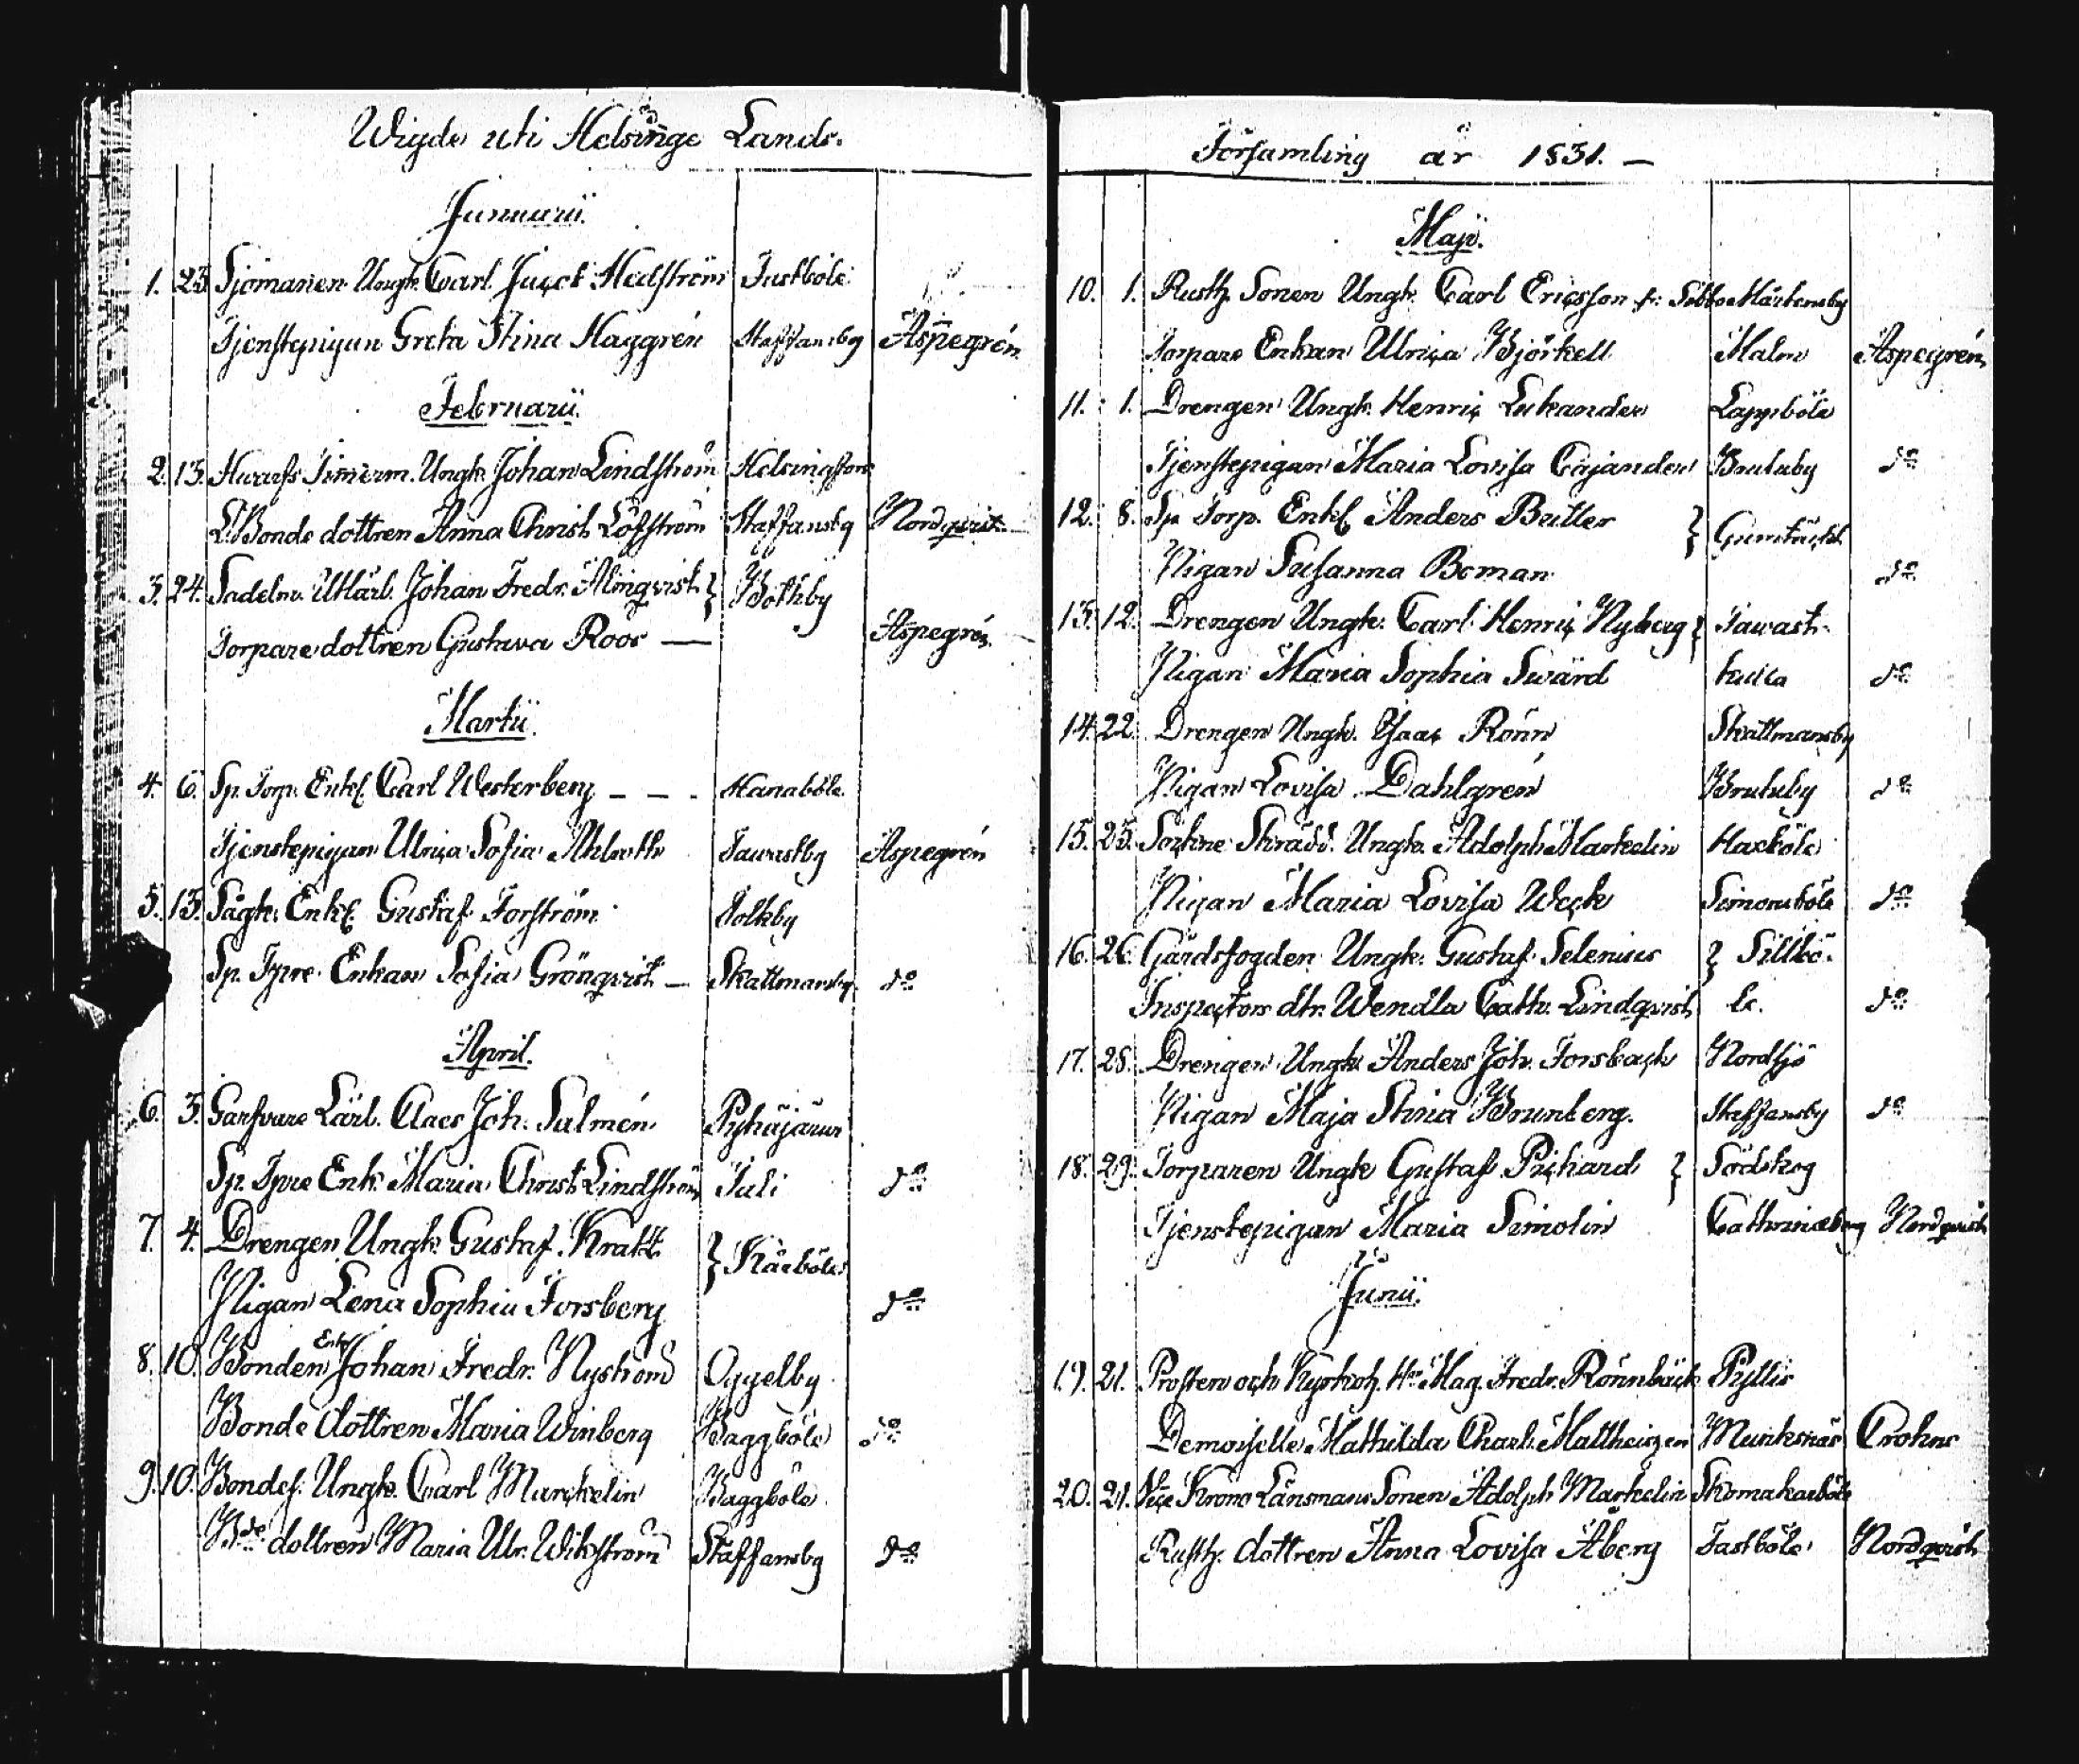 Wigde uti Helsinge Lands-
Januarii.
1. 23. Sjömannen Ungk. Carl Hedström Tastböle
Tjenstepigan Greta Stina Haggrén Staffansby Aspegrén
Februarii.
2. 13. Hwarfs Timerm. Ungk. Johan Lindström Helsingfors
Bonde dottren Anna Christ. Löfström Staffansby Nordqvist
3. 24. Sadelm. Johan Fredr. Almqvist } Bothby
Torpare dottren Gustava Roos — Aspegrén
Martii.
4. 6. Sp. Torp. Enkl. Carl Westerberg - - - Hanaböle
Tjenstepigan Ulrica Sofia Tawastby Aspegrén
5. 13. Sågk. Enkl. Gustaf Forström Tolkby
Sp. Tpre Enkan Sofia Grönqvist — Skattmansby do
April.
6. 3. Garfvare Lärl. Claes Joh. Salmén Pyhäjärwi
Sp. Tpre Enk. Maria Christ. Lindström Tali do
7. 4. Drengen Ungk. Gustaf Kratt } Kårböle
Pigan Lena Sophia Forsberg do
8. 10. Bonden Enkl. Johan Fredr. Nyström Oggelby
Bonde dottren Maria Winberg Baggböle do
9. 10. Bondes. Ungk. Carl Marckelin Baggböle
Bde dottren Maria Ulr. Wikström Staffansby do
Församling år 1831. —
Maji.
10. 1. Rusth. Sonen Ungk. Carl Ericsson fr. Sibbo Mårtensby
Torpare Enkan Ulrica Björkell Malm Aspegrén
11. 1. Drengen Ungk. Henric Lukander Lappböle
Tjenstepigan Maria Lovisa Cajander Brutuby do
12. 8. Sp. Torp. Enkl. Anders Butler } Gumtäckt
Pigan Susanna Boman do
13. 12. Drengen Ungk. Carl Henric Nyberg } Tawast-
Pigan Maria Sophia Swärd kulla do
14. 22. Drengen Ungk. Isaac Rönn Skattmansby
Pigan Lovisa Dahlgrén Brutuby do
15. 25. Sockne Skrädd. Ungk. Adolph Markelin Haxböle
Pigan Maria Lovisa Weck Simonsböle do
16. 26. Gårdsfogden Ungk. Gustaf Selenius } Sillbö-
Inspectors dtr. Wendla Cath. Lindqvist le. do
17. 28. Drengen Ungk. Anders Joh. Forsback Nordsjö
Pigan Maja Stina Brunberg. Staffansby do
18. 29. Torparen Ungk. Gustaf Pichard } Södskog
Tjenstepigan Maria Simolin Cathrineberg Nordqvist
Junii.
19. 21. Prosten och Kyrkoh. Hr Mag. Fredr. Rönnbäck Pyttis
Demoiselle Mathilda Charl. Mattheiszen Munksnäs Crohns
20. 21. Vice Krono Länsmans Sonen Adolph Markelin Skomakarböle
Rusth. dottren Anna Lovisa Åberg Tastböle Nordqvist